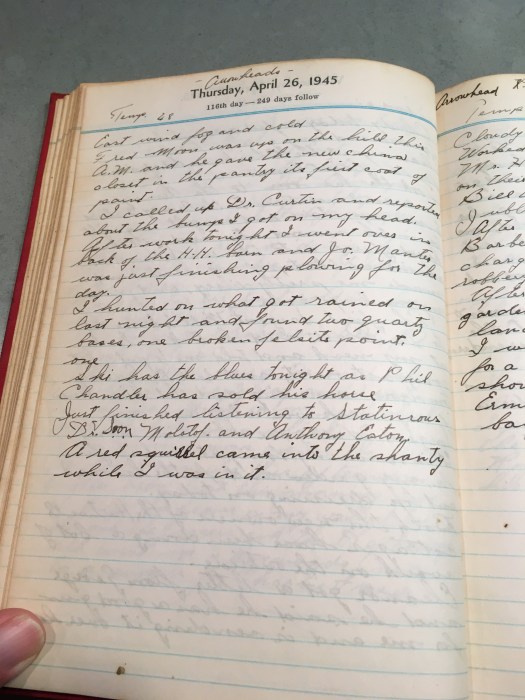 - Arrowheads -
Thursday, April 26, 1945
116th day — 249 days follow
Temp 48
East wind fog and cold
Fred Moon was up on the hill this
A.M. and he gave the new china
closet in the pantry its first coat of
paint.
I called up Dr. Curtin and reported
about the bumps I got on my head.
After work tonight I went over in
back of the H.H. barn and Jo. Mantes
was just finishing plowing for the
day.
I hunted on what got rained on
last night and found two quartz
bases, one broken felsite point.
one
Ski has the blues tonight as Phil
Chandler has sold his horse
Just finished listening to Statinrous
Dr. Soon Molotof. and Anthony Eaton
A red squirrel came into the shanty
while I was in it.
Arrowhead
Temp
Cloudy
Worked
Mr.
on their
Bill
I
After
Barb
charg
robber
After
garde
lan
I we
for a
shou
Erm
ba